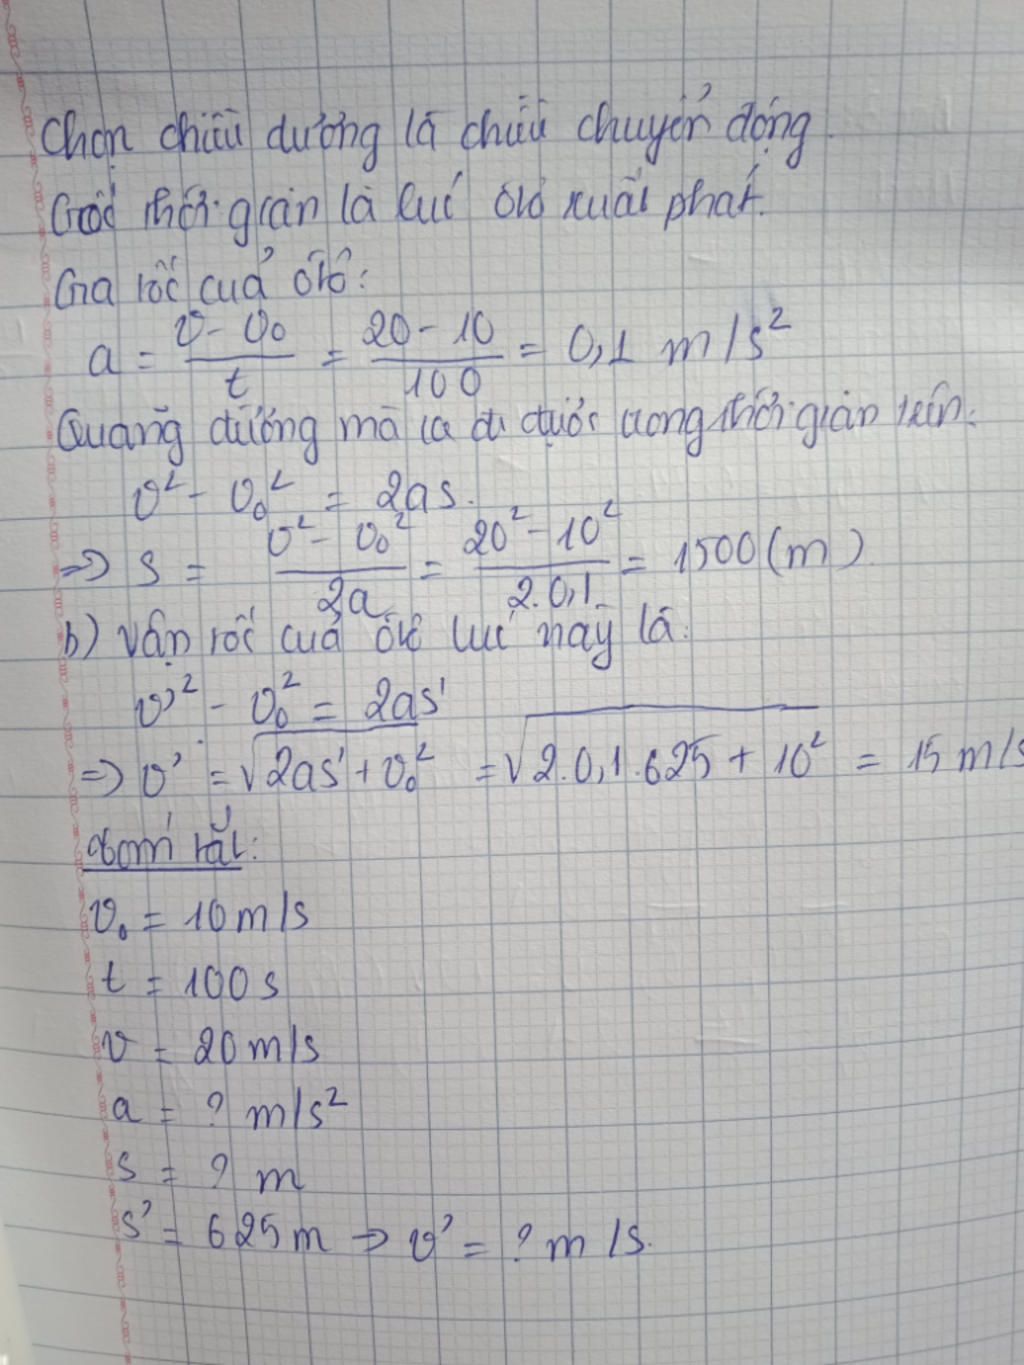 Chọn chiều dương là chiều chuyển động.
Gốc thời gian là lúc ôtô xuất phát.
Gia tốc của ôtô:
a = (v - v₀)/t = (20 - 10)/100 = 0,1 m/s²
Quãng đường mà ta đi được trong thời gian trên:
v² - v₀² = 2as.
=> s = (v² - v₀²)/(2a) = (20² - 10²)/(2.0,1) = 1500 (m)
b) Vận tốc của ôtô lúc này là:
v'² - v₀² = 2as'
=> v' = √(2as' + v₀²) = √(2.0,1.625 + 10²) = 15 m/s
Tóm tắt:
v₀ = 10 m/s
t = 100 s
v = 20 m/s
a = ? m/s²
s = ? m
s' = 625 m → v' = ? m/s.